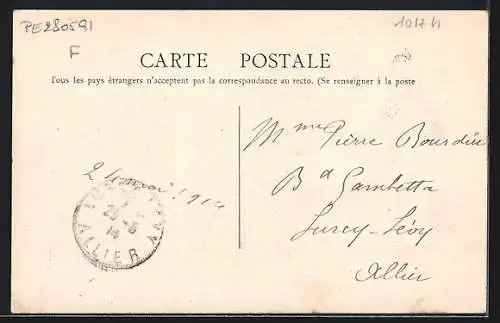 PE280591
F
1017H
CARTE POSTALE
Tous les pays étrangers n'acceptent pas la correspondance au recto. (Se renseigner à la poste
Mme Pierre Bourdin
Bd Gambetta
Lurcy-Lévy
Allier
24 mai 1914
ALLIER